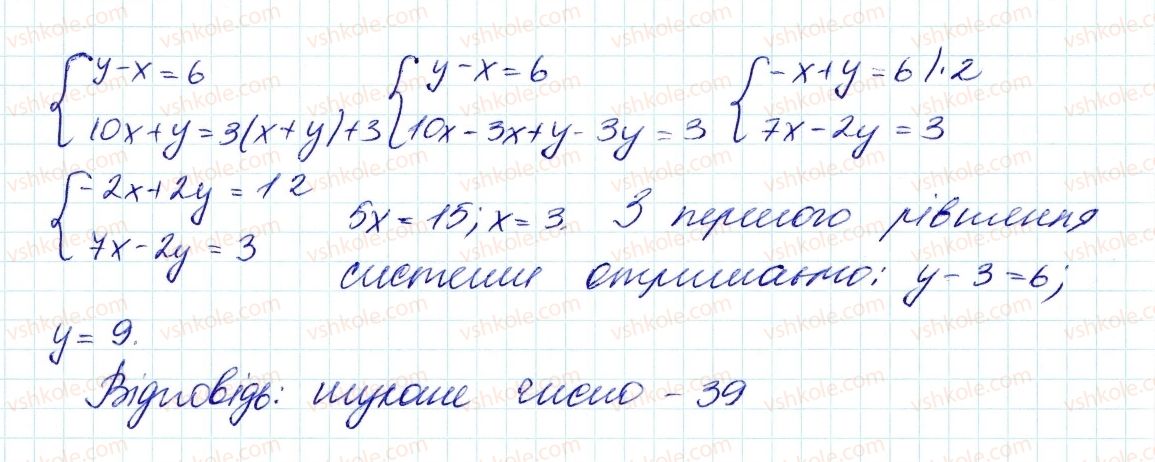 { y-x=6 { y-x=6 { -x+y=6 |·2
10x+y=3(x+y)+3 10x-3x+y-3y=3 7x-2y=3
{ -2x+2y=12
7x-2y=3 5x=15; x=3. З першого рівняння
системи отримаємо: y-3=6;
y=9.
Відповідь: шукане число - 39